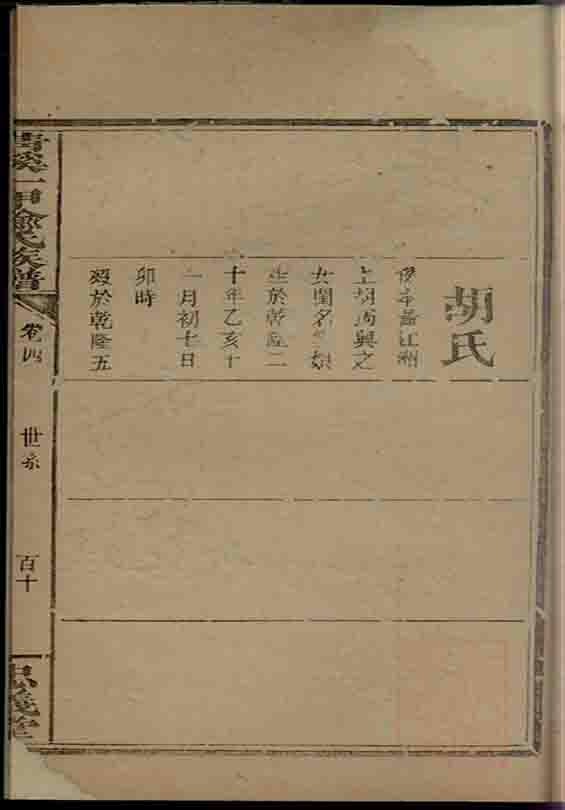 胡氏
江洲
上胡
女閨名 娘
生於乾隆二
十年乙亥十
一月初七日
卯時
歿於乾隆五
氏族譜
卷四
世系
百十
義堂